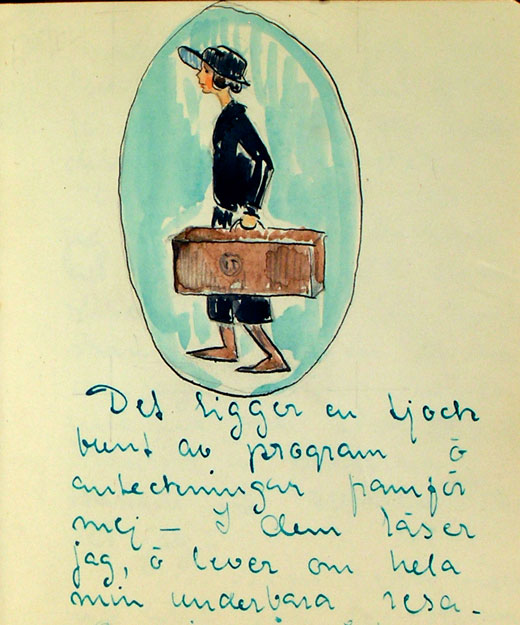 Det ligger en tjock
bunt av program ö
anteckningar framför
mej – I dem läser
jag, ö lever om hela
min underbara resa.